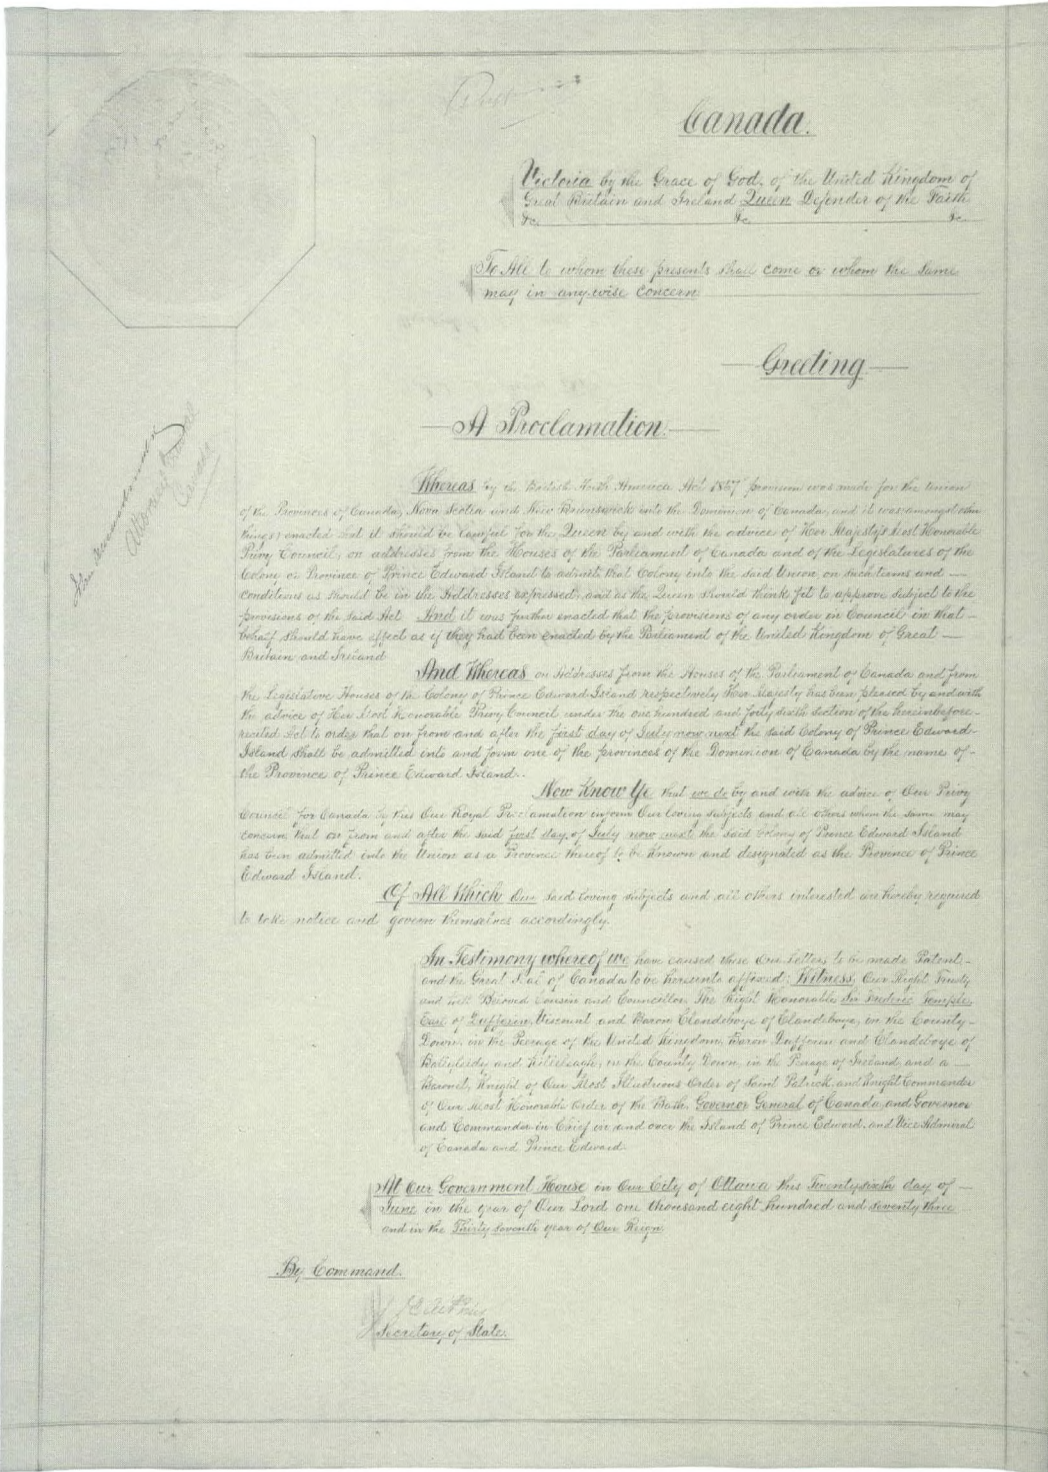 Canada.
Victoria by the Grace of God, of the United Kingdom of
Great Britain and Ireland Queen Defender of the Faith
&c. &c. &c.
To All to whom these presents shall come or whom the same
may in any wise concern
Greeting
A Proclamation.
Whereas by the British North America Act 1867 provision was made for the union
of the Provinces of Canada, Nova Scotia and New Brunswick into the Dominion of Canada, and it was amongst other
things enacted that it should be lawful for the Queen by and with the advice of Her Majesty's Most Honourable
Privy Council, on addresses from the Houses of the Parliament of Canada and of the Legislatures of the
Colony or Province of Prince Edward Island to admit that Colony into the said Union, on such terms and
conditions as should be in the Addresses expressed, and as the Queen should think fit to approve subject to the
provisions of the said Act And it was further enacted that the provisions of any order in Council in that
behalf should have effect as if they had been enacted by the Parliament of the United Kingdom of Great
Britain and Ireland
And Whereas on Addresses from the Houses of the Parliament of Canada and from
the Legislative Houses of the Colony of Prince Edward Island respectively Her Majesty has been pleased by and with
the advice of Her Most Honorable Privy Council under the one hundred and forty sixth section of the hereinbefore
recited Act to order that on from and after the first day of July now next the said Colony of Prince Edward
Island shall be admitted into and form one of the provinces of the Dominion of Canada by the name of
the Province of Prince Edward Island.
Now Know Ye that we do by and with the advice of Our Privy
Council for Canada by this Our Royal Proclamation inform Our loving subjects and all others whom the same may
concern that on from and after the said first day of July now next the said Colony of Prince Edward Island
has been admitted into the Union as a Province thereof to be known and designated as the Province of Prince
Edward Island.
Of All Which Our said loving subjects and all others interested are hereby required
to take notice and govern themselves accordingly.
In Testimony whereof we have caused these Our Letters to be made Patent
and the Great Seal of Canada to be hereunto affixed: Witness, Our Right Trusty
and well Beloved Cousin and Councillor, The Right Honorable Sir Frederic Temple,
Earl of Dufferin, Viscount and Baron Clandeboye of Clandeboye, in the County
Down, in the Peerage of the United Kingdom, Baron Dufferin and Clandeboye of
Ballyleidy and Killeleagh, in the County Down, in the Peerage of Ireland and a
Baronet, Knight of Our Most Illustrious Order of Saint Patrick, and Knight Commander
of Our Most Honorable Order of the Bath, Governor General of Canada, and Governor
and Commander in Chief in and over the Island of Prince Edward, and Vice Admiral
of Canada and Prince Edward.
At Our Government House in Our City of Ottawa this Twenty sixth day of
June in the year of Our Lord one thousand eight hundred and seventy three
and in the Thirty seventh year of Our Reign
By Command.
Secretary of State.
Attorney
Canada